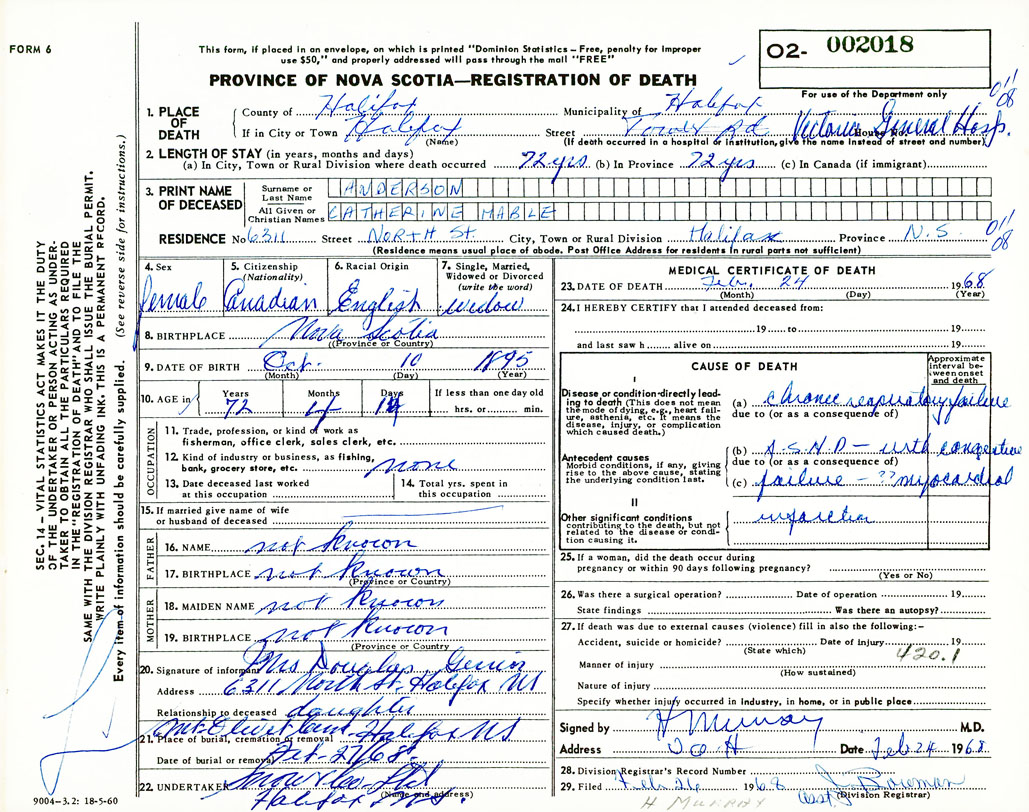 FORM 6
This form, if placed in an envelope, on which is printed "Dominion Statistics – Free, penalty for improper
use $50," and properly addressed will pass through the mail "FREE"
PROVINCE OF NOVA SCOTIA—REGISTRATION OF DEATH
O2- 002018
For use of the Department only
SEC. 14 – VITAL STATISTICS ACT MAKES IT THE DUTY
OF THE UNDERTAKER OR PERSON ACTING AS UNDER-
TAKER TO OBTAIN ALL THE PARTICULARS REQUIRED
IN THE "REGISTRATION OF DEATH" AND TO FILE THE
SAME WITH THE DIVISION REGISTRAR WHO SHALL ISSUE THE BURIAL PERMIT.
WRITE PLAINLY WITH UNFADING INK. THIS IS A PERMANENT RECORD.
Every item of information should be carefully supplied. (See reverse side for instructions.)
1. PLACE OF DEATH
County of Halifax Municipality of Halifax
If in City or Town Halifax Street Tower Rd Victoria General Hosp.
(Name) House No.
(If death occurred in a hospital or institution, give the name instead of street and number)
011
08
2. LENGTH OF STAY (in years, months and days)
(a) In City, Town or Rural Division where death occurred 72 yrs (b) In Province 72 yrs (c) In Canada (if immigrant)
3. PRINT NAME OF DECEASED
Surname or Last Name ANDERSON
All Given or Christian Names CATHERINE MABLE
RESIDENCE No 6311 Street NORTH St. City, Town or Rural Division Halifax Province N.S.
(Residence means usual place of abode. Post Office Address for residents in rural parts not sufficient)
011
08
4. Sex female
5. Citizenship (Nationality) Canadian
6. Racial Origin English
7. Single, Married, Widowed or Divorced (write the word) widow
8. BIRTHPLACE Nova Scotia
(Province or Country)
9. DATE OF BIRTH Oct. 10 1895
(Month) (Day) (Year)
10. AGE in Years 72 Months 4 Days 14 If less than one day old
hrs. or min.
OCCUPATION
11. Trade, profession, or kind of work as
fisherman, office clerk, sales clerk, etc.
12. Kind of industry or business, as fishing,
bank, grocery store, etc. none
13. Date deceased last worked
at this occupation
14. Total yrs. spent in
this occupation
15. If married give name of wife
or husband of deceased
FATHER
16. NAME not known
17. BIRTHPLACE not known
(Province or Country)
MOTHER
18. MAIDEN NAME not known
19. BIRTHPLACE not known
(Province or Country
20. Signature of informant Mrs Douglas
Address 6311 North St. Halifax NS
Relationship to deceased daughter
21. Place of burial, cremation or removal Mt. Olivet Cem Halifax NS
Date of burial or removal Feb. 27/68
22. UNDERTAKER Snow & Co Ltd
Halifax N.S.
(Name and address)
9004-3.2: 18-5-60
MEDICAL CERTIFICATE OF DEATH
23. DATE OF DEATH Feb. 24 1968
(Month) (Day) (Year)
24. I HEREBY CERTIFY that I attended deceased from:
19 to 19
and last saw h alive on 19
CAUSE OF DEATH
Approximate interval between onset and death
I
Disease or condition directly leading to death (This does not mean the mode of dying, e.g., heart failure, asthenia, etc. It means the disease, injury, or complication which caused death.)
(a) chronic respiratory failure
due to (or as a consequence of)
Antecedent causes
Morbid conditions, if any, giving rise to the above cause, stating the underlying condition last.
(b) A.S.H.D – with congestive
due to (or as a consequence of)
(c) failure – ?? myocardial
II
Other significant conditions
contributing to the death, but not related to the disease or condition causing it.
infarction
25. If a woman, did the death occur during
pregnancy or within 90 days following pregnancy?
(Yes or No)
26. Was there a surgical operation? Date of operation 19
State findings Was there an autopsy?
27. If death was due to external causes (violence) fill in also the following:–
Accident, suicide or homicide? Date of Injury 19
(State which)
420.1
Manner of injury
(How sustained)
Nature of injury
Specify whether injury occurred in industry, in home, or in public place
Signed by H Murray M.D.
Address V G H Date Feb 24 1968
28. Division Registrar's Record Number
29. Filed Feb 26 1968
(Division Registrar)
H Murray